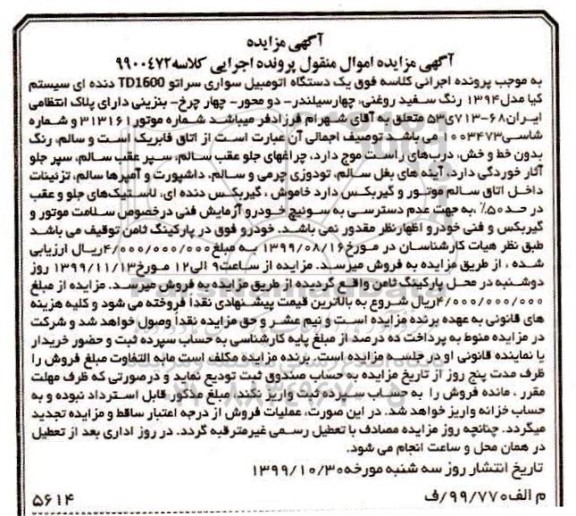 آگهی مزایده
آگهی مزایده اموال منقول پرونده اجرایی کلاسه ۹۹۰۰۴۷۲
به موجب پرونده اجرائی کلاسه فوق یک دستگاه اتومبیل سواری سراتو TD1600 دنده ای سیستم
کیا مدل ۱۳۹۴ رنگ سفید روغنی، چهارسیلندر- دو محور- چهار چرخ- بنزینی دارای پلاک انتظامی
ایران۶۸-۷۱۳ی۵۳ متعلق به آقای شهرام فرزادفر میباشد شماره موتور ۳۱۳۱۶۱ و شماره
شاسی ۱۰۰۳۴۷۳ می باشد توصیف اجمالی آن عبارت است از اتاق فابریک است و سالم، رنگ
بدون خط و خش، درب‌های راست موج دارد، چراغهای جلو عقب سالم، سپر عقب سالم، سپر جلو
آثار خوردگی دارد، آینه های بغل سالم، تودوزی چرمی و سالم، داشپورت و آمپرها سالم، تزئینات
داخل اتاق سالم موتور و گیربکس دارد خاموش ، گیربکس دنده ای، لاستیک‌های جلو و عقب
در حد ۵۰٪ ،به جهت عدم دسترسی به سوئیچ خودرو آزمایش فنی درخصوص سلامت موتور و
گیربکس و فنی خودرو اظهارنظر مقدور نمی باشد. خودرو فوق در پارکینگ ثامن توقیف می باشد
طبق نظر هیات کارشناسان در مورخ ۱۳۹۹/۰۸/۱۶ به مبلغ ۴/۰۰۰/۰۰۰/۰۰۰ریال ارزیابی
شده ، از طریق مزایده به فروش میرسد. مزایده از ساعت ۹ الی ۱۲ مورخ ۱۳۹۹/۱۱/۱۳ روز
دوشنبه در محل پارکینگ ثامن واقع گردیده از طریق مزایده به فروش میرسد. مزایده از مبلغ
۴/۰۰۰/۰۰۰/۰۰۰ریال شروع به بالاترین قیمت پیشنهادی نقدا فروخته می شود و کلیه هزینه
های قانونی به عهده برنده مزایده است و نیم عشر و حق مزایده نقدا وصول خواهد شد و شرکت
در مزایده منوط به پرداخت ده درصد از مبلغ پایه کارشناسی به حساب سپرده ثبت و حضور خریدار
یا نماینده قانونی او در جلسه مزایده است. برنده مزایده مکلف است مابه التفاوت مبلغ فروش را
ظرف مدت پنج روز از تاریخ مزایده به حساب صندوق ثبت تودیع نماید و درصورتی که ظرف مهلت
مقرر ، مانده فروش را به حساب سپرده ثبت واریز نکند، مبلغ مذکور قابل استرداد نبوده و به
حساب خزانه واریز خواهد شد. در این صورت، عملیات فروش از درجه اعتبار ساقط و مزایده تجدید
میگردد. چنانچه روز مزایده مصادف با تعطیل رسمی غیرمترقبه گردد. در روز اداری بعد از تعطیل
در همان محل و ساعت انجام می شود.
تاریخ انتشار روز سه شنبه مورخه ۱۳۹۹/۱۰/۳۰
م الف ۹۹/۷۷۰/ف ۵۶۱۴